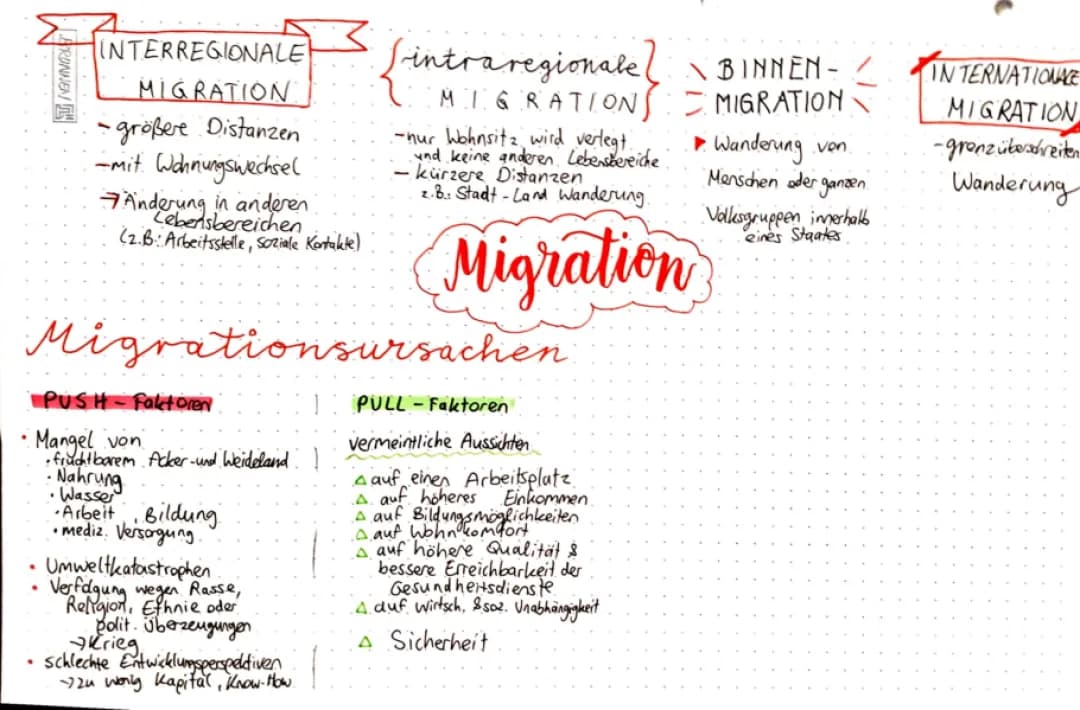 INTERREGIONALE
MIGRATION
- größere Distanzen
- mit Wohnungswechsel
→ Änderung in anderen
Lebensbereichen
(z.B.: Arbeitsstelle, soziale Kontakte)
intraregionale
MIGRATION
- nur Wohnsitz wird verlegt
und keine anderen Lebensbereiche
- kürzere Distanzen
z.B.: Stadt-Land Wanderung
BINNEN-
MIGRATION
Wanderung von
Menschen oder ganzen
Volksgruppen innerhalb
eines Staates
INTERNATIONALE
MIGRATION
- grenzüberschreiten
Wanderung
Migration
Migrationsursachen
PUSH-Faktoren
• Mangel von
· fruchtbarem Acker-und Weideland
· Nahrung
· Wasser
· Arbeit, Bildung
· mediz. Versorgung
• Umweltkatastrophen
• Verfolgung wegen Rasse,
Religion, Ethnie oder
polit. Überzeugungen
→ Krieg
• schlechte Entwicklungsperspektiven
→ zu wenig Kapital, Know-How
PULL-Faktoren
vermeintliche Aussichten
△ auf einen Arbeitsplatz
△ auf höheres Einkommen
△ auf Bildungsmöglichkeiten
△ auf Wohnkomfort
△ auf höhere Qualität &
bessere Erreichbarkeit der
Gesundheitsdienste
△ auf wirtsch. & soz. Unabhängigkeit
△ Sicherheit